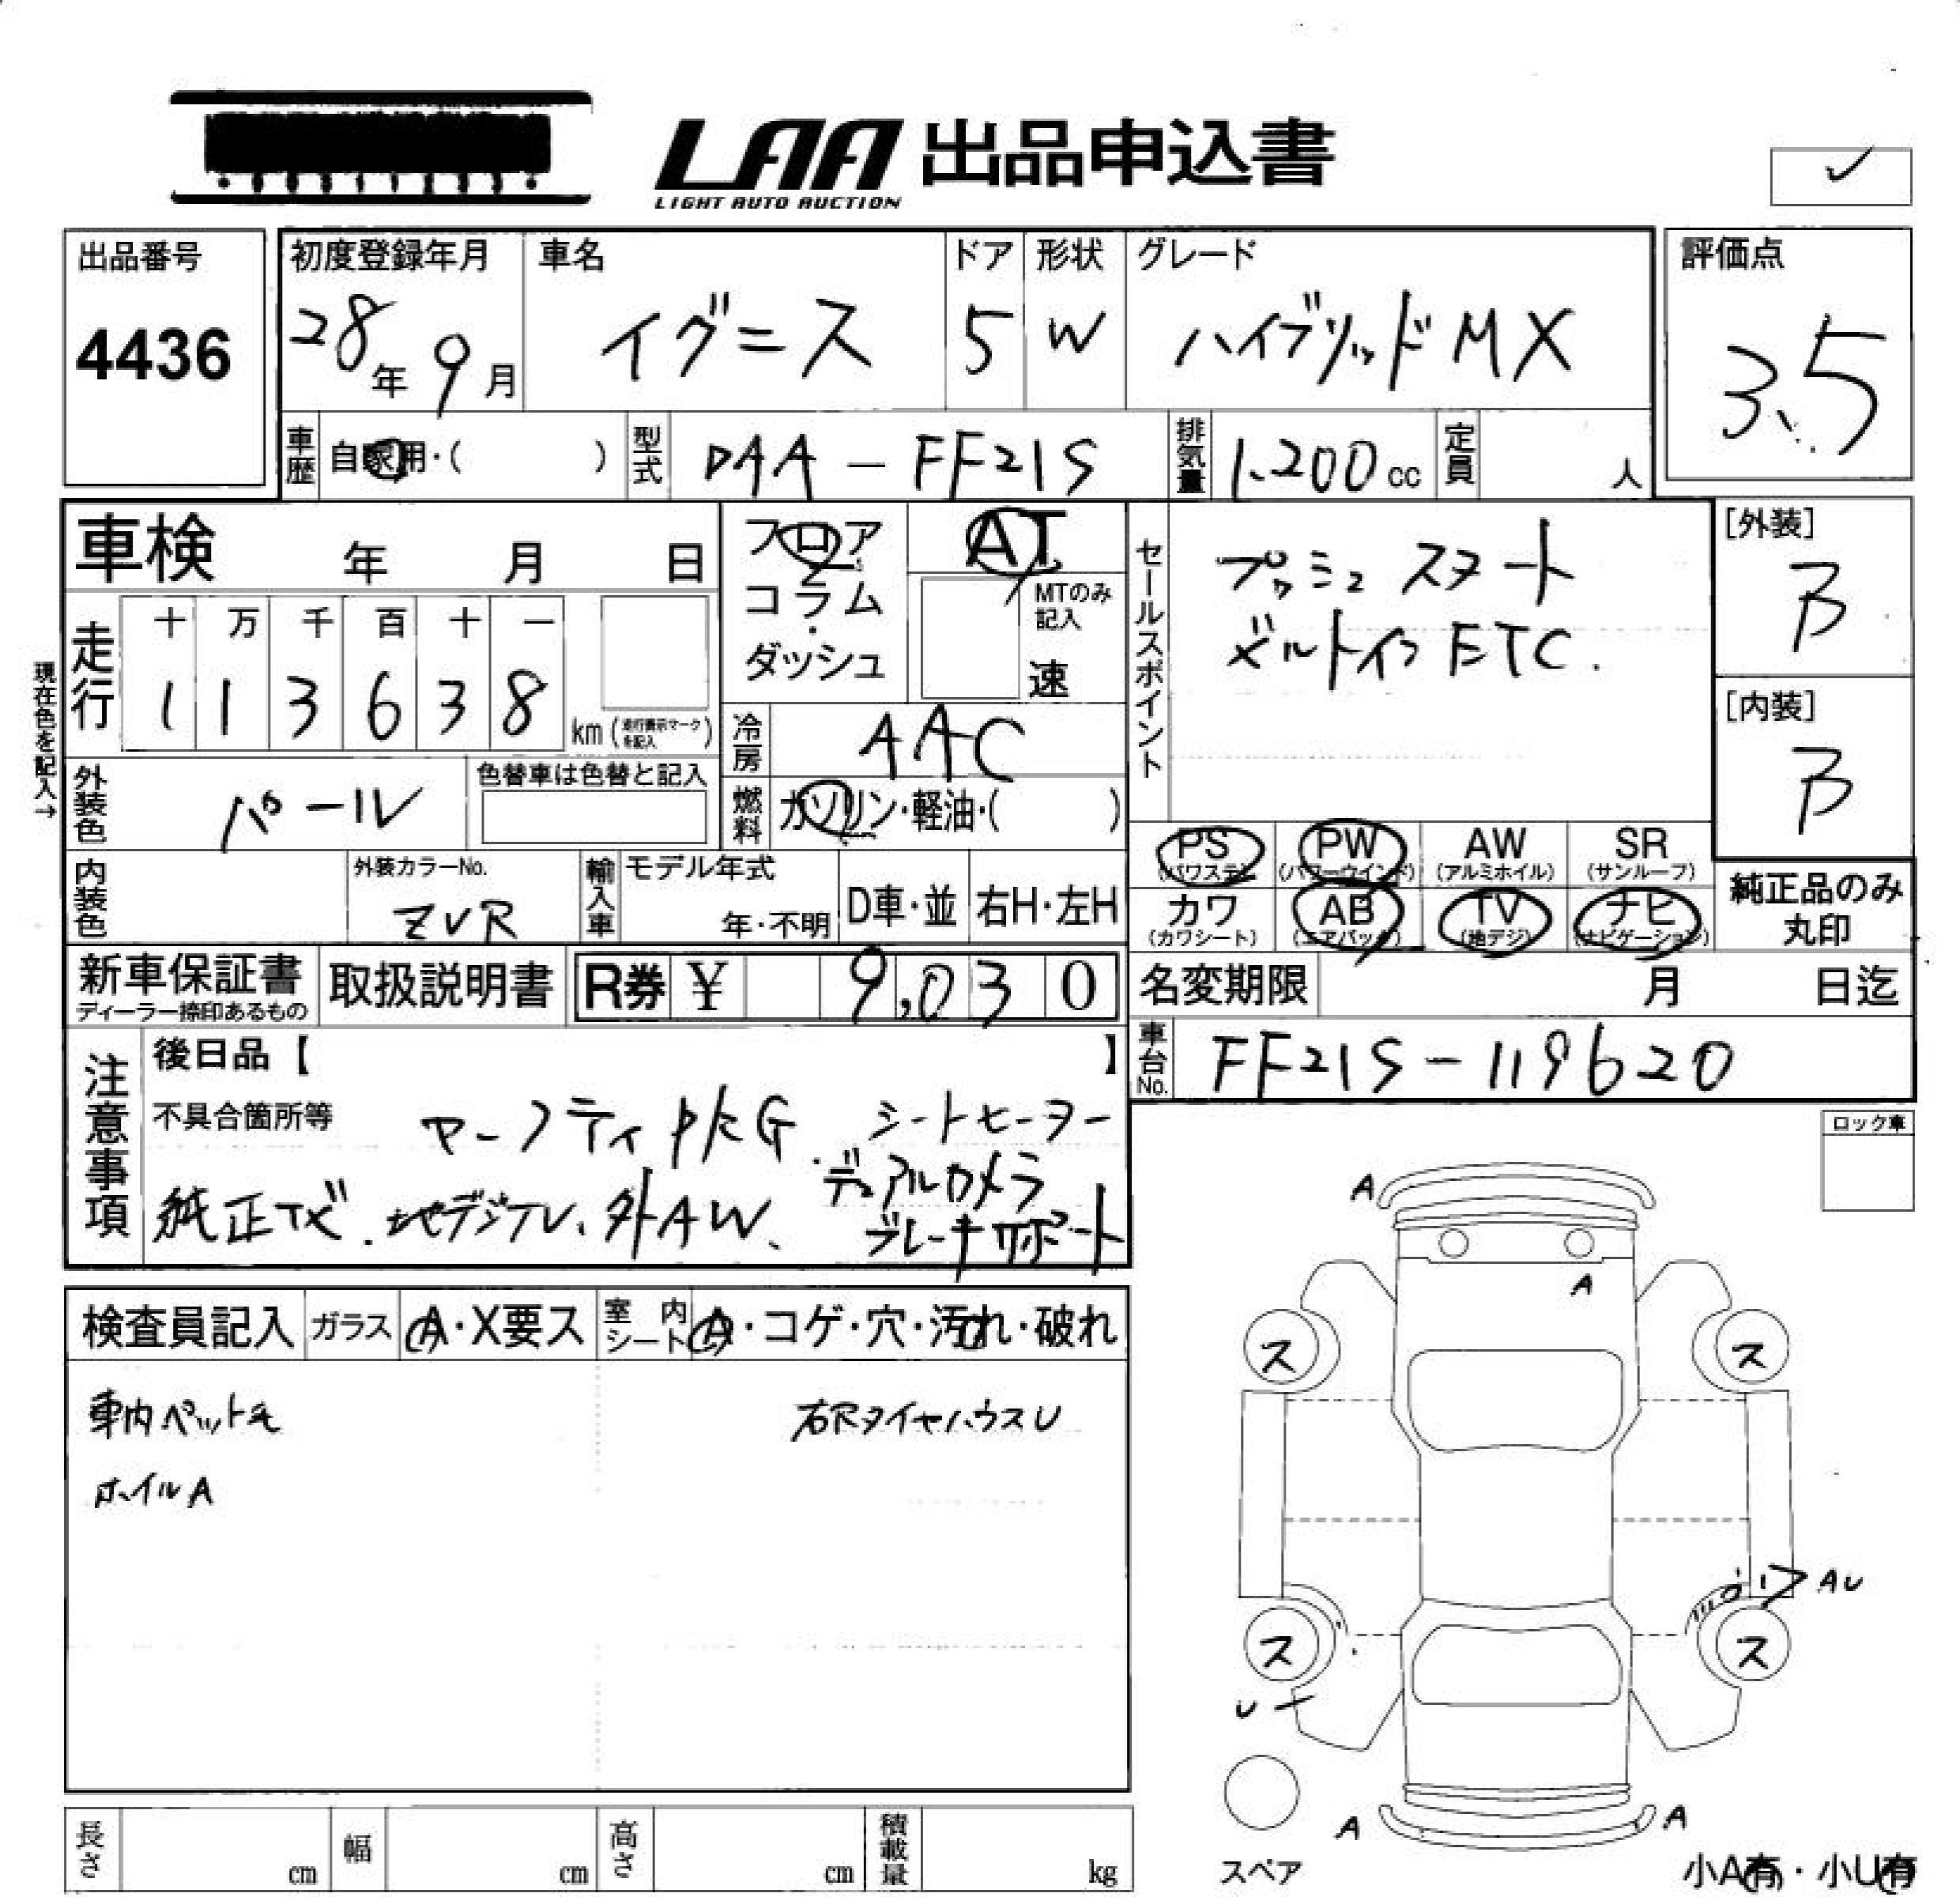 LAA 出品申込書
LIGHT AUTO AUCTION
出品番号
4436
初度登録年月
28年 9月
車名
イグニス
ドア
5
形状
W
グレード
ハイブリッドMX
評価点
3.5
車歴 自家用・( )
型式 DAA-FF21S
排気量 1,200cc
定員 人
車検 年 月 日
フロア・コラム・ダッシュ
AT
MTのみ記入
速
セールスポイント
プッシュスタート
ビルトインETC.
[外装]
B
[内装]
B
現在色を記入→
走行
十 万 千 百 十 一
1 1 3 6 3 8
km(走行表示マークを記入)
冷房 AAC
外装色 パール
色替車は色替と記入
燃料 ガソリン・軽油・( )
PS(パワステ) PW(パワーウインド) AW(アルミホイル) SR(サンルーフ)
カワ(カワシート) AB(エアバック) TV(地デジ) ナビ(ナビゲーション)
純正品のみ丸印
内装色
外装カラーNo.
ZVR
輸入車 モデル年式
年・不明
D車・並 右H・左H
新車保証書
ディーラー捺印あるもの
取扱説明書
R券 ¥ 9,030
名変期限 月 日迄
車台No. FF21S-119620
注意事項
後日品【 】
不具合箇所等
セーフティPKG シートヒーター
デュアルカメラ
純正ナビ.地デジTV、外AW、ブレーキサポート
ロック車
検査員記入 ガラス A・X要ス 室内シート A・コゲ・穴・汚れ・破れ
車内ペット毛
右Rタイヤハウス U
ホイルA
A
A
ス ス
AU
ス ス
U
A A
スペア
長さ cm 幅 cm 高さ cm 積載量 kg
小A有・小U有